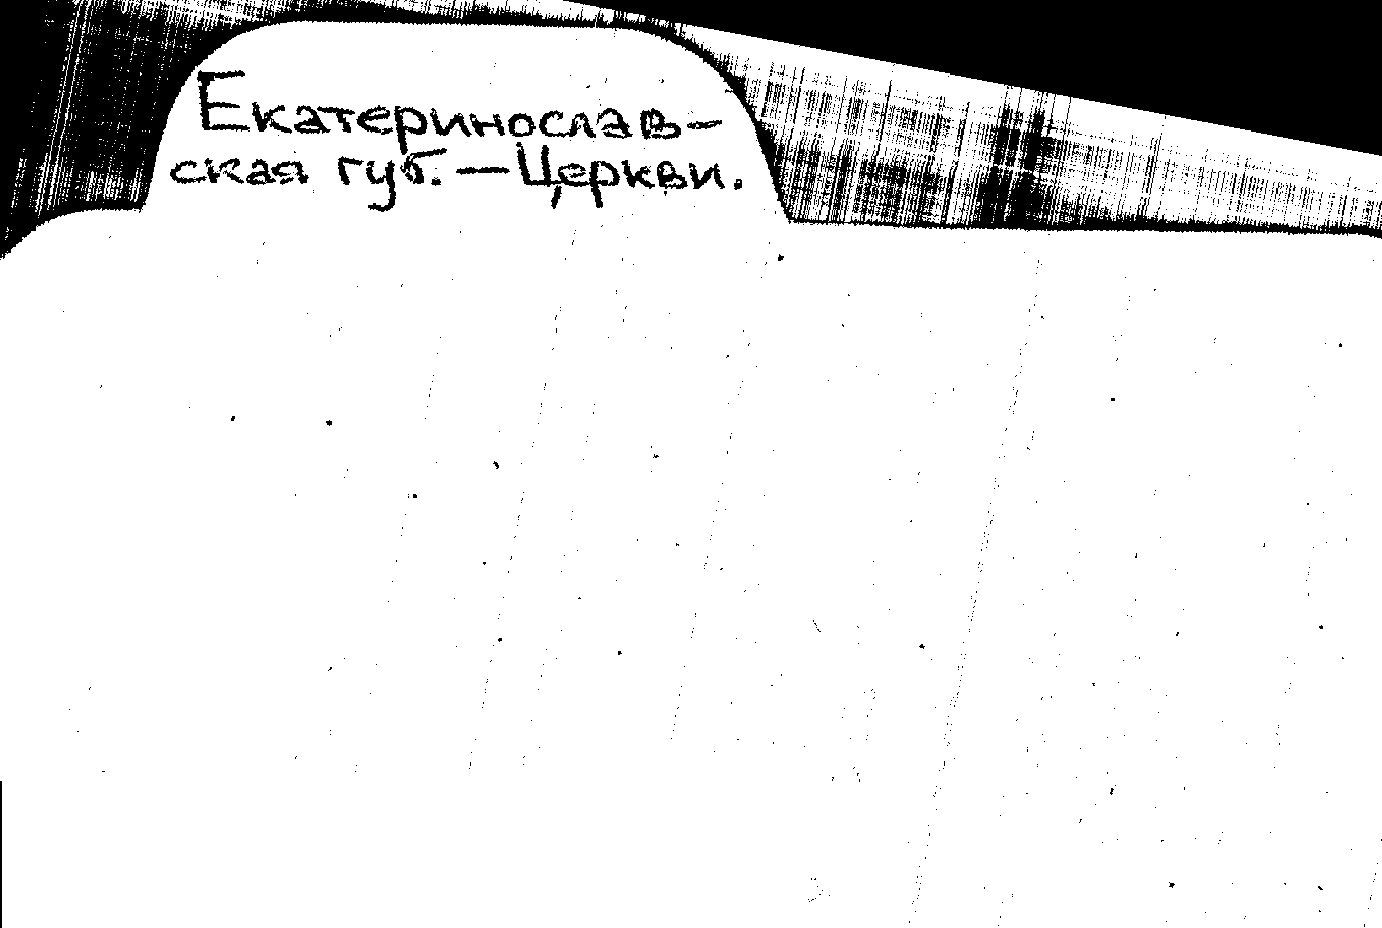 Екатеринослав-
ская губ. — Церкви.